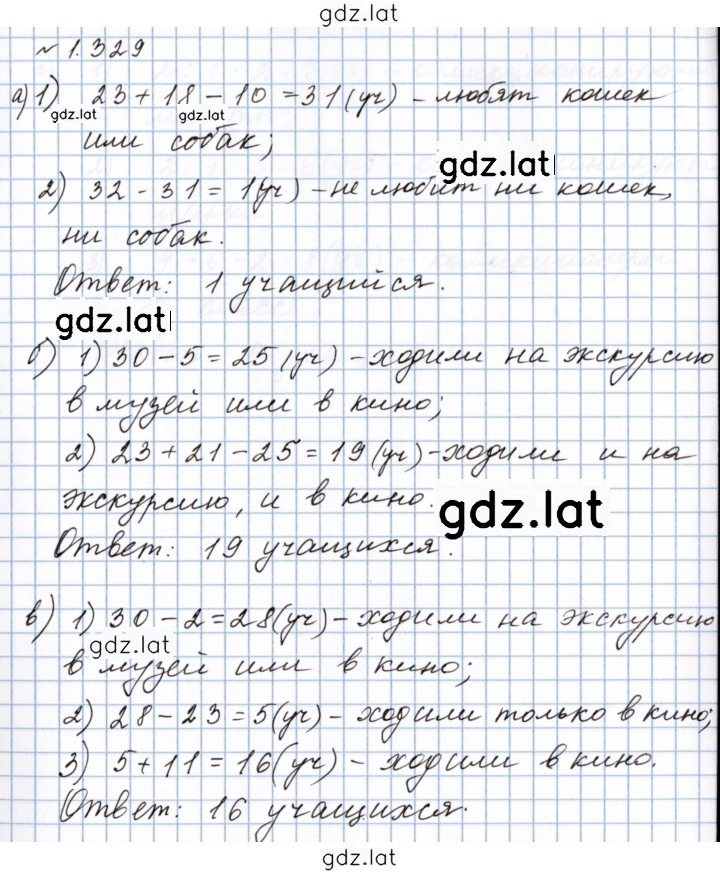 gdz.lat
№ 1.329
а) 1) 23 + 18 - 10 = 31 (уч) - любят кошек
gdz.lat gdz.lat
или собак;
gdz.lat
2) 32 - 31 = 1 (уч) - не любит ни кошек,
ни собак.
Ответ: 1 учащийся.
gdz.lat
б) 1) 30 - 5 = 25 (уч) - ходили на экскурсию
в музей или в кино;
2) 23 + 21 - 25 = 19 (уч) - ходили и на
экскурсию, и в кино.
gdz.lat
Ответ: 19 учащихся.
в) 1) 30 - 2 = 28 (уч) - ходили на экскурсию
gdz.lat
в музей или в кино;
2) 28 - 23 = 5 (уч) - ходили только в кино;
3) 5 + 11 = 16 (уч) - ходили в кино.
Ответ: 16 учащихся.
gdz.lat